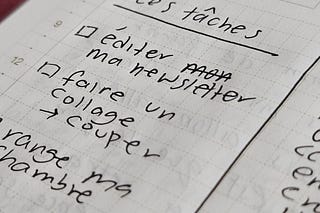 tâches
9
☐ éditer
ma newsletter
12
☐ faire un
collage
→ couper
range ma
chambre